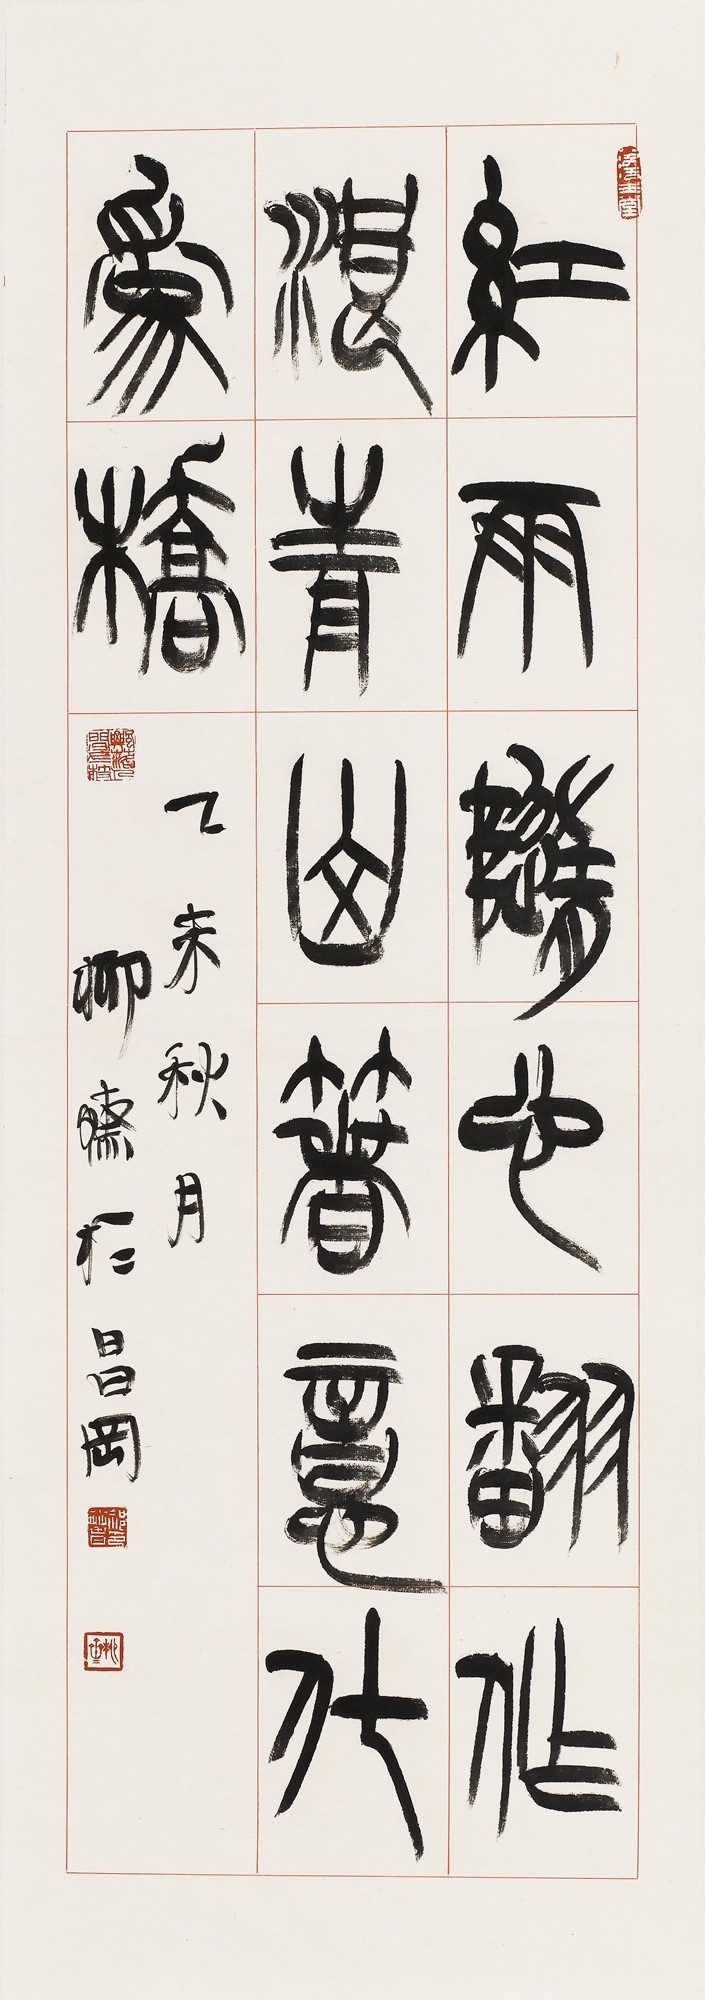 紅雨隨心翻作
浪青山著意化
為橋
乙未秋月
柳於昌岡